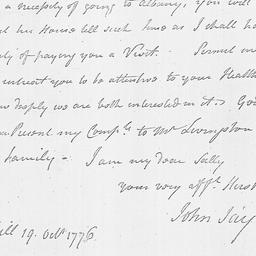 a necessity of going to Albany, you will
his House till such time as I shall ha
of paying you a Visit. Permit m
intreat you to be attentive to your Health
deeply we are both interested in it. God
present my Comp.ts to Mr Livingston
family - I am my dear Sally
your very aff.t Husb
John Jay
ill 19. Octr 1776